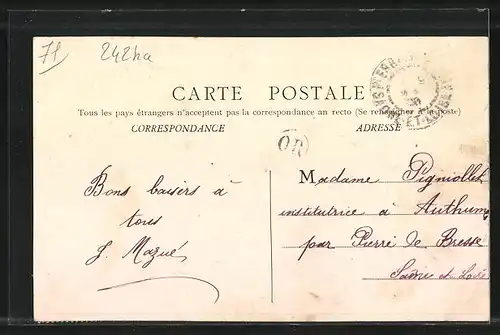 71 242ha
CARTE POSTALE
Tous les pays étrangers n'acceptent pas la correspondance au recto (Se renseigner à la poste)
CORRESPONDANCE
ADRESSE
OR
Bons baisers à
tous
J. Mazué
Madame Pigniollet
institutrice à Authumes
par Pierre de Bresse
Saône et Loire